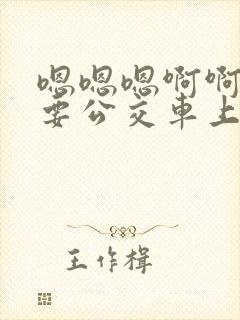 嗯嗯嗯啊啊
要公交車上
王作楫